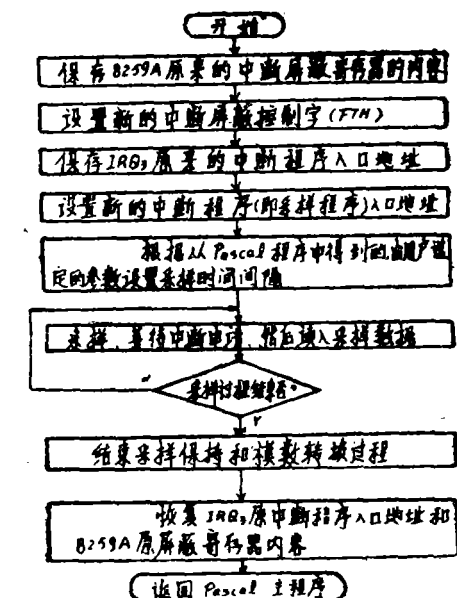 开始
保存8259A原来的中断屏蔽寄存器的内容
设置新的中断屏蔽控制字(F7H)
保存IRQ₃原来的中断程序入口地址
设置新的中断程序(即采样程序)入口地址
根据从Pascal程序中得到的由用户选
定的参数设置采样时间间隔
采样,等待中断申请,然后读入采样数据
采样过程结束否?
Y
结束采样保持和模数转换过程
恢复IRQ₃原中断程序入口地址和
8259A原屏蔽寄存器内容
返回Pascal主程序